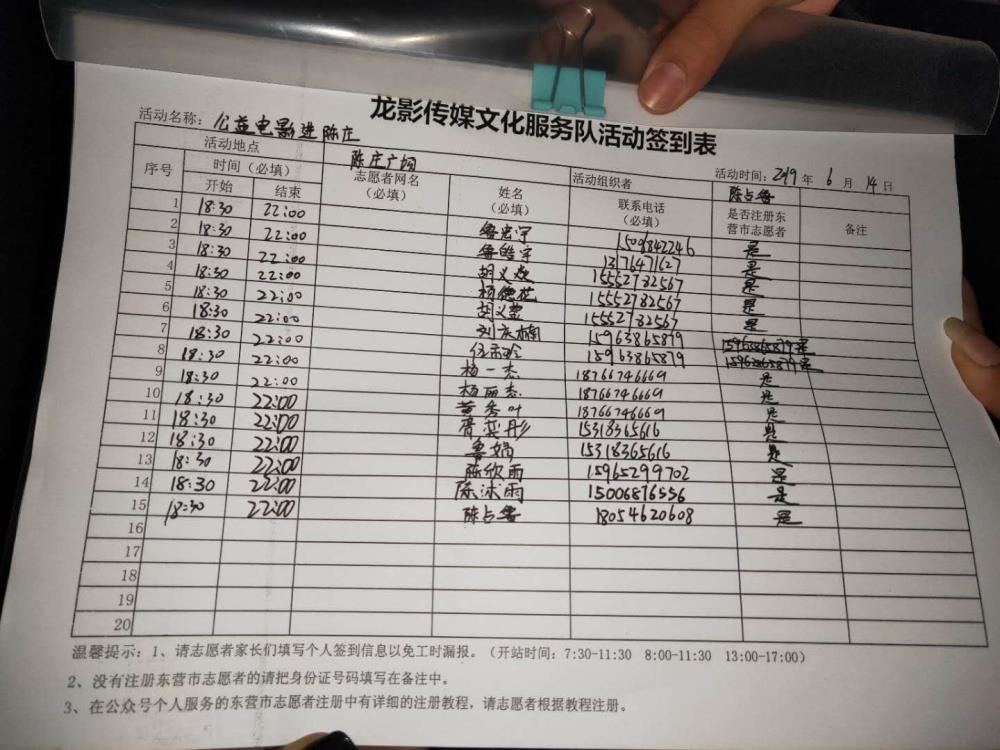 龙影传媒文化服务队活动签到表
活动名称：公益电影进陈庄
活动时间：2019年 6月 14日
活动地点 陈庄广场 活动组织者 陈占鲁
序号 时间（必填） 志愿者网名（必填） 姓名（必填） 联系电话（必填） 是否注册东营市志愿者 备注
开始 结束
1 18:30 22:00 1509842246 是
2 18:30 22:00 13176471627 是
3 18:30 22:00 胡义 15552782567 是
4 18:30 22:00 杨德花 15552782567 是
5 18:30 22:00 胡义 15552782567 是
6 18:30 22:00 刘庆楠 15963865879 是
7 18:30 22:00 任 15963865879 是
8 18:30 22:00 杨一杰 18766746669 是
9 18:30 22:00 杨丽杰 18766746669 是
10 18:30 22:00 黄秀叶 18766746669 是
11 18:30 22:00 15318365616 是
12 18:30 22:00 鲁娟 15318365616 是
13 18:30 22:00 陈欣雨 15965299702 是
14 18:30 22:00 陈沐雨 15006876556 是
15 18:30 22:00 陈占鲁 18054620608 是
16
17
18
19
20
温馨提示：1、请志愿者家长们填写个人签到信息以免工时漏报。（开站时间：7:30-11:30 8:00-11:30 13:00-17:00）
2、没有注册东营市志愿者的请把身份证号码填写在备注中。
3、在公众号个人服务的东营市志愿者注册中有详细的注册教程，请志愿者根据教程注册。